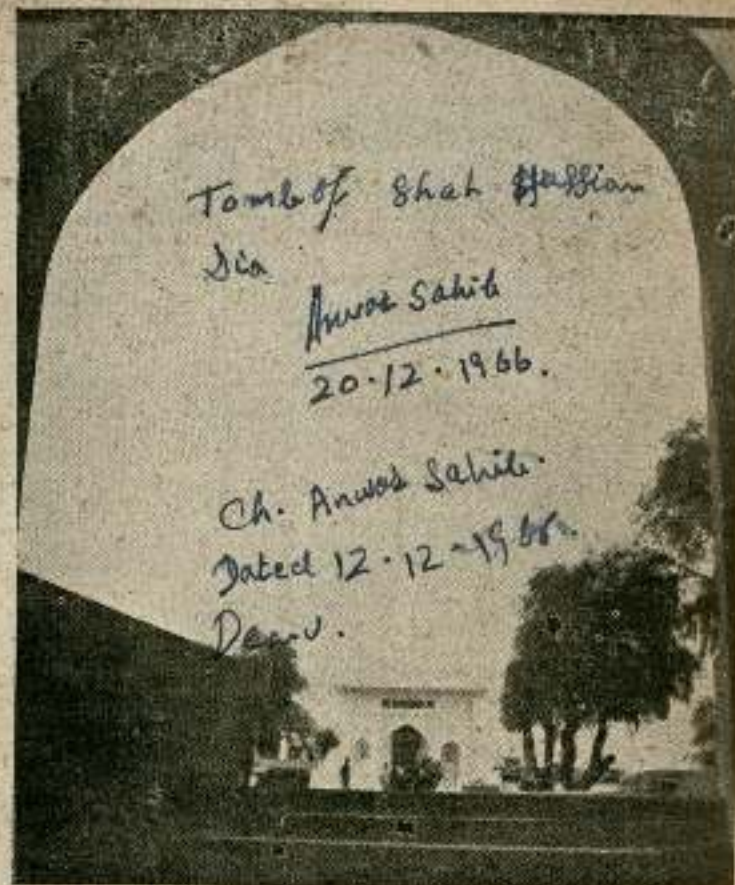 Tomb of Shah Hussian
Dia
Anwar Sahib
20.12.1966.
Ch. Anwar Sahib.
Dated 12.12-19